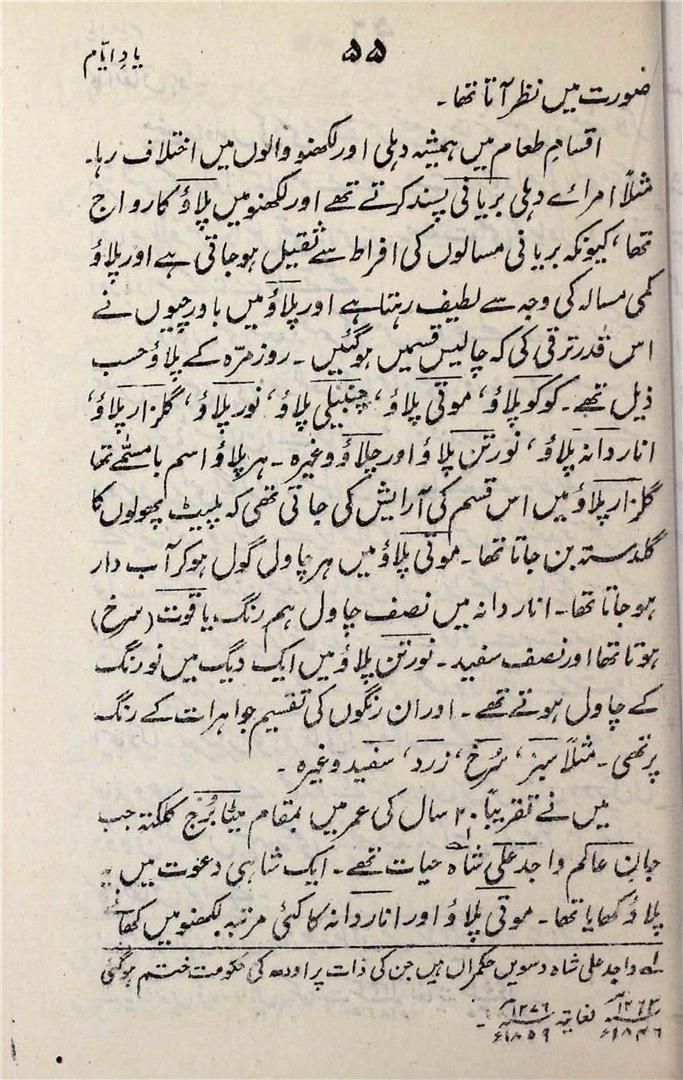 ۵۵
یادِ ایّام
صورت میں نظر آتا تھا۔
اقسامِ طعام میں ہمیشہ دہلی اور لکھنو والوں میں اختلاف رہا۔
مثلاً امرائے دہلی بریانی پسند کرتے تھے اور لکھنو میں پلاؤ کا رواج
تھا، کیونکہ بریانی مسالوں کی افراط سے ثقیل ہو جاتی ہے اور پلاؤ
کمی مسالہ کی وجہ سے لطیف رہتا ہے اور پلاؤ میں باورچیوں نے
اس قدر ترقی کی کہ چالیس قسمیں ہو گئیں۔ روز مرّہ کے پلاؤ حسب
ذیل تھے۔ کوکو پلاؤ، موتی پلاؤ، چنبیلی پلاؤ، نور پلاؤ، گلزار پلاؤ،
انار دانہ پلاؤ، نورتن پلاؤ اور چلاؤ وغیرہ۔ ہر پلاؤ اسم بامسمّے تھا
گلزار پلاؤ میں اس قسم کی آرایش کی جاتی تھی کہ پلیٹ پھولوں کا
گلدستہ بن جاتا تھا۔ موتی پلاؤ میں ہر چاول گول ہو کر آب دار
ہو جاتا تھا۔ انار دانہ میں نصف چاول ہم رنگ یاقوت (سرخ)
ہوتا تھا اور نصف سفید۔ نورتن پلاؤ میں ایک دیگ میں نو رنگ
کے چاول ہوتے تھے۔ اور ان رنگوں کی تقسیم جواہرات کے رنگ
پر تھی۔ مثلاً سبز، سُرخ، زرد، سفید وغیرہ۔
میں نے تقریباً ۲۰ سال کی عمر میں بمقام مٹیا بُرج کلکتہ جب
جانِ عالم واجد علی شاہ حیات تھے۔ ایک شاہی دعوت میں یہ
پلاؤ کھایا تھا۔ موتی پلاؤ اور انار دانہ کا کئی مرتبہ لکھنو میں کھانے
لہ واجد علی شاہ دسویں حکمراں ہیں جن کی ذات پر اودھ کی حکومت ختم ہو گئی
۱۲۶۳ھ ۱۸۴۶ء لغایتہ ۱۲۷۶ھ ۱۸۵۹ء۔